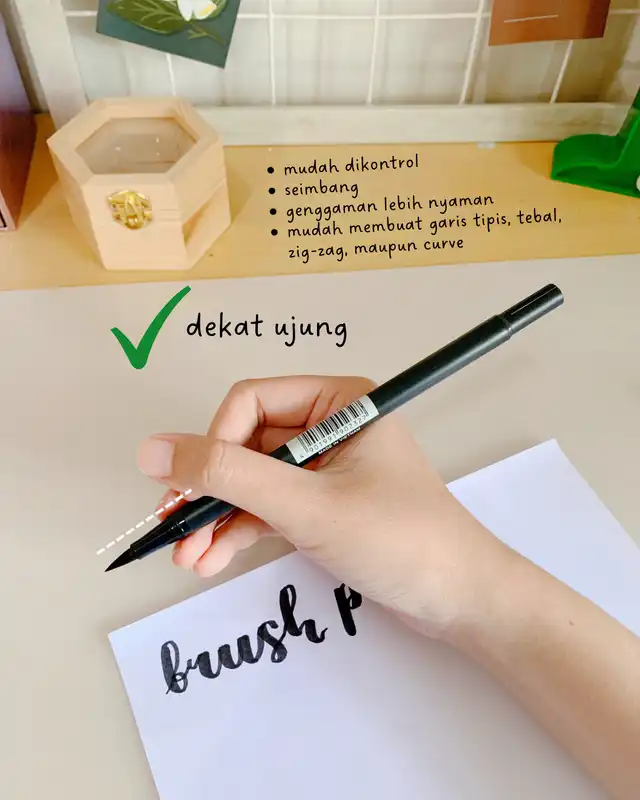 • mudah dikontrol
• seimbang
• genggaman lebih nyaman
• mudah membuat garis tipis, tebal,
zig-zag, maupun curve
dekat ujung
brush p